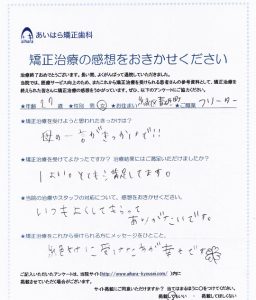 あいはら矯正歯科
aihara
矯正治療の感想をおきかせください
治療終了おめでとうございます。長い間、よくがんばって通院していただきました。
当院では、医療サービス向上のため、またこれから矯正治療を受けられる患者さんの参考資料として、矯正治療を
終えられた皆さんに矯正治療の感想をうかがっています。ぜひ、以下のアンケートにご協力ください。
★年齢 歳 ★性別 男 女 ★お住まい ★ご職業 フリーター
★矯正治療を受けようと思われたきっかけは?
母の一言がきっかけで!!
★矯正治療を受けてよかったですか? 治療結果にはご満足いただけましたか?
はい。とても満足してます。
★当院の治療やスタッフの対応について、感想をおきかせください。
いつもよくしてもらって
ありがたいです。
★矯正治療をこれから受けられる方にメッセージをひとこと。
絶対に受けた方が幸せです
ご記入いただいたアンケートは、当院サイト(http://www.aihara-kyousei.com/)内に
掲載させていただく場合がございます。
サイト掲載にご同意いただけますか? 当てはまるほうに○をつけてください。
掲載してもいい ・ 掲載されると困る